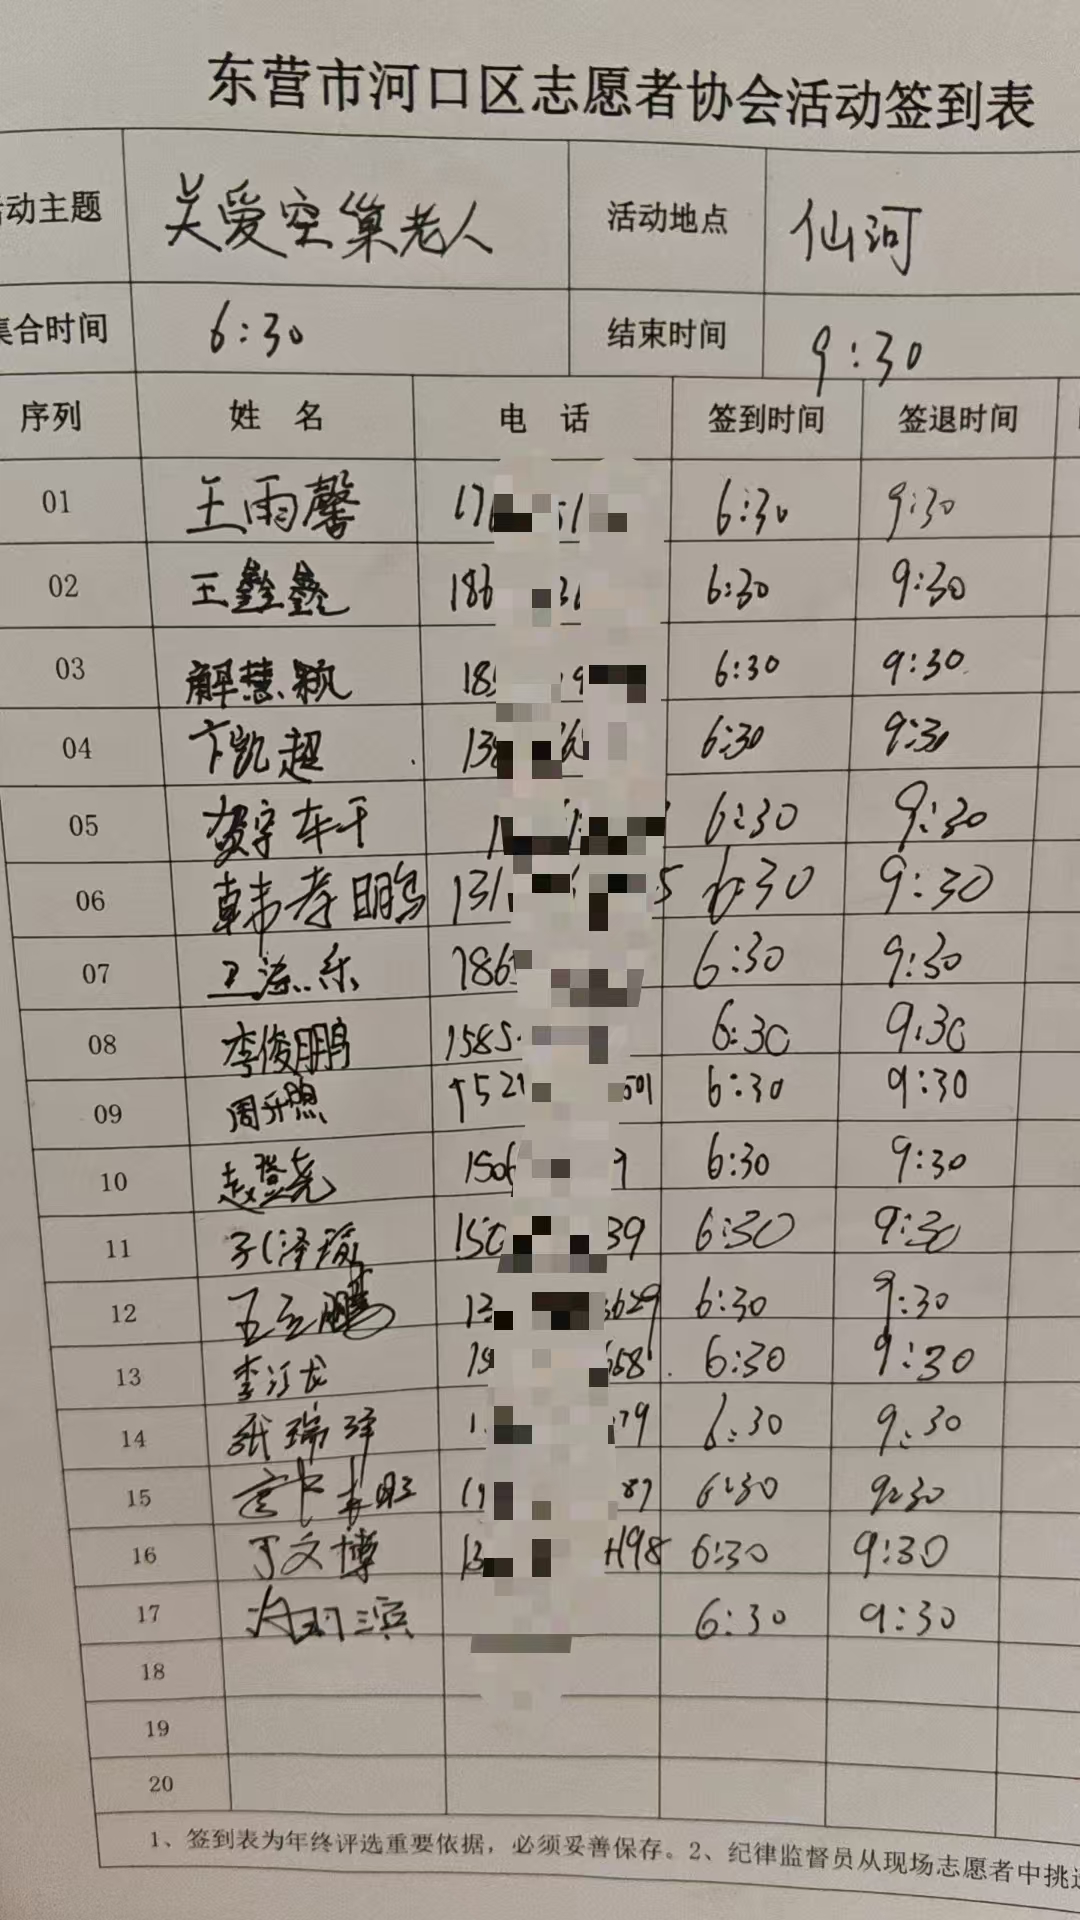 东营市河口区志愿者协会活动签到表
动主题 关爱空巢老人 活动地点 仙河
集合时间 6:30 结束时间 9:30
序列 姓名 电话 签到时间 签退时间
01 王雨馨 6:30 9:30
02 王鑫鑫 186 6:30 9:30
03 解慧颖 6:30 9:30
04 卞凯超 6:30 9:30
05 6:30 9:30
06 韩孝鹏 131 5 6:30 9:30
07 186 6:30 9:30
08 李俊鹏 1585 6:30 9:30
09 周升煦 1521 501 6:30 9:30
10 赵登尧 150 9 6:30 9:30
11 孔泽瑜 150 39 6:30 9:30
12 629 6:30 9:30
13 李江龙 668 6:30 9:30
14 张瑞泽 79 6:30 9:30
15 87 6:30 9:30
16 丁文博 13 498 6:30 9:30
17 6:30 9:30
18
19
20
1、签到表为年终评选重要依据，必须妥善保存。2、纪律监督员从现场志愿者中挑选